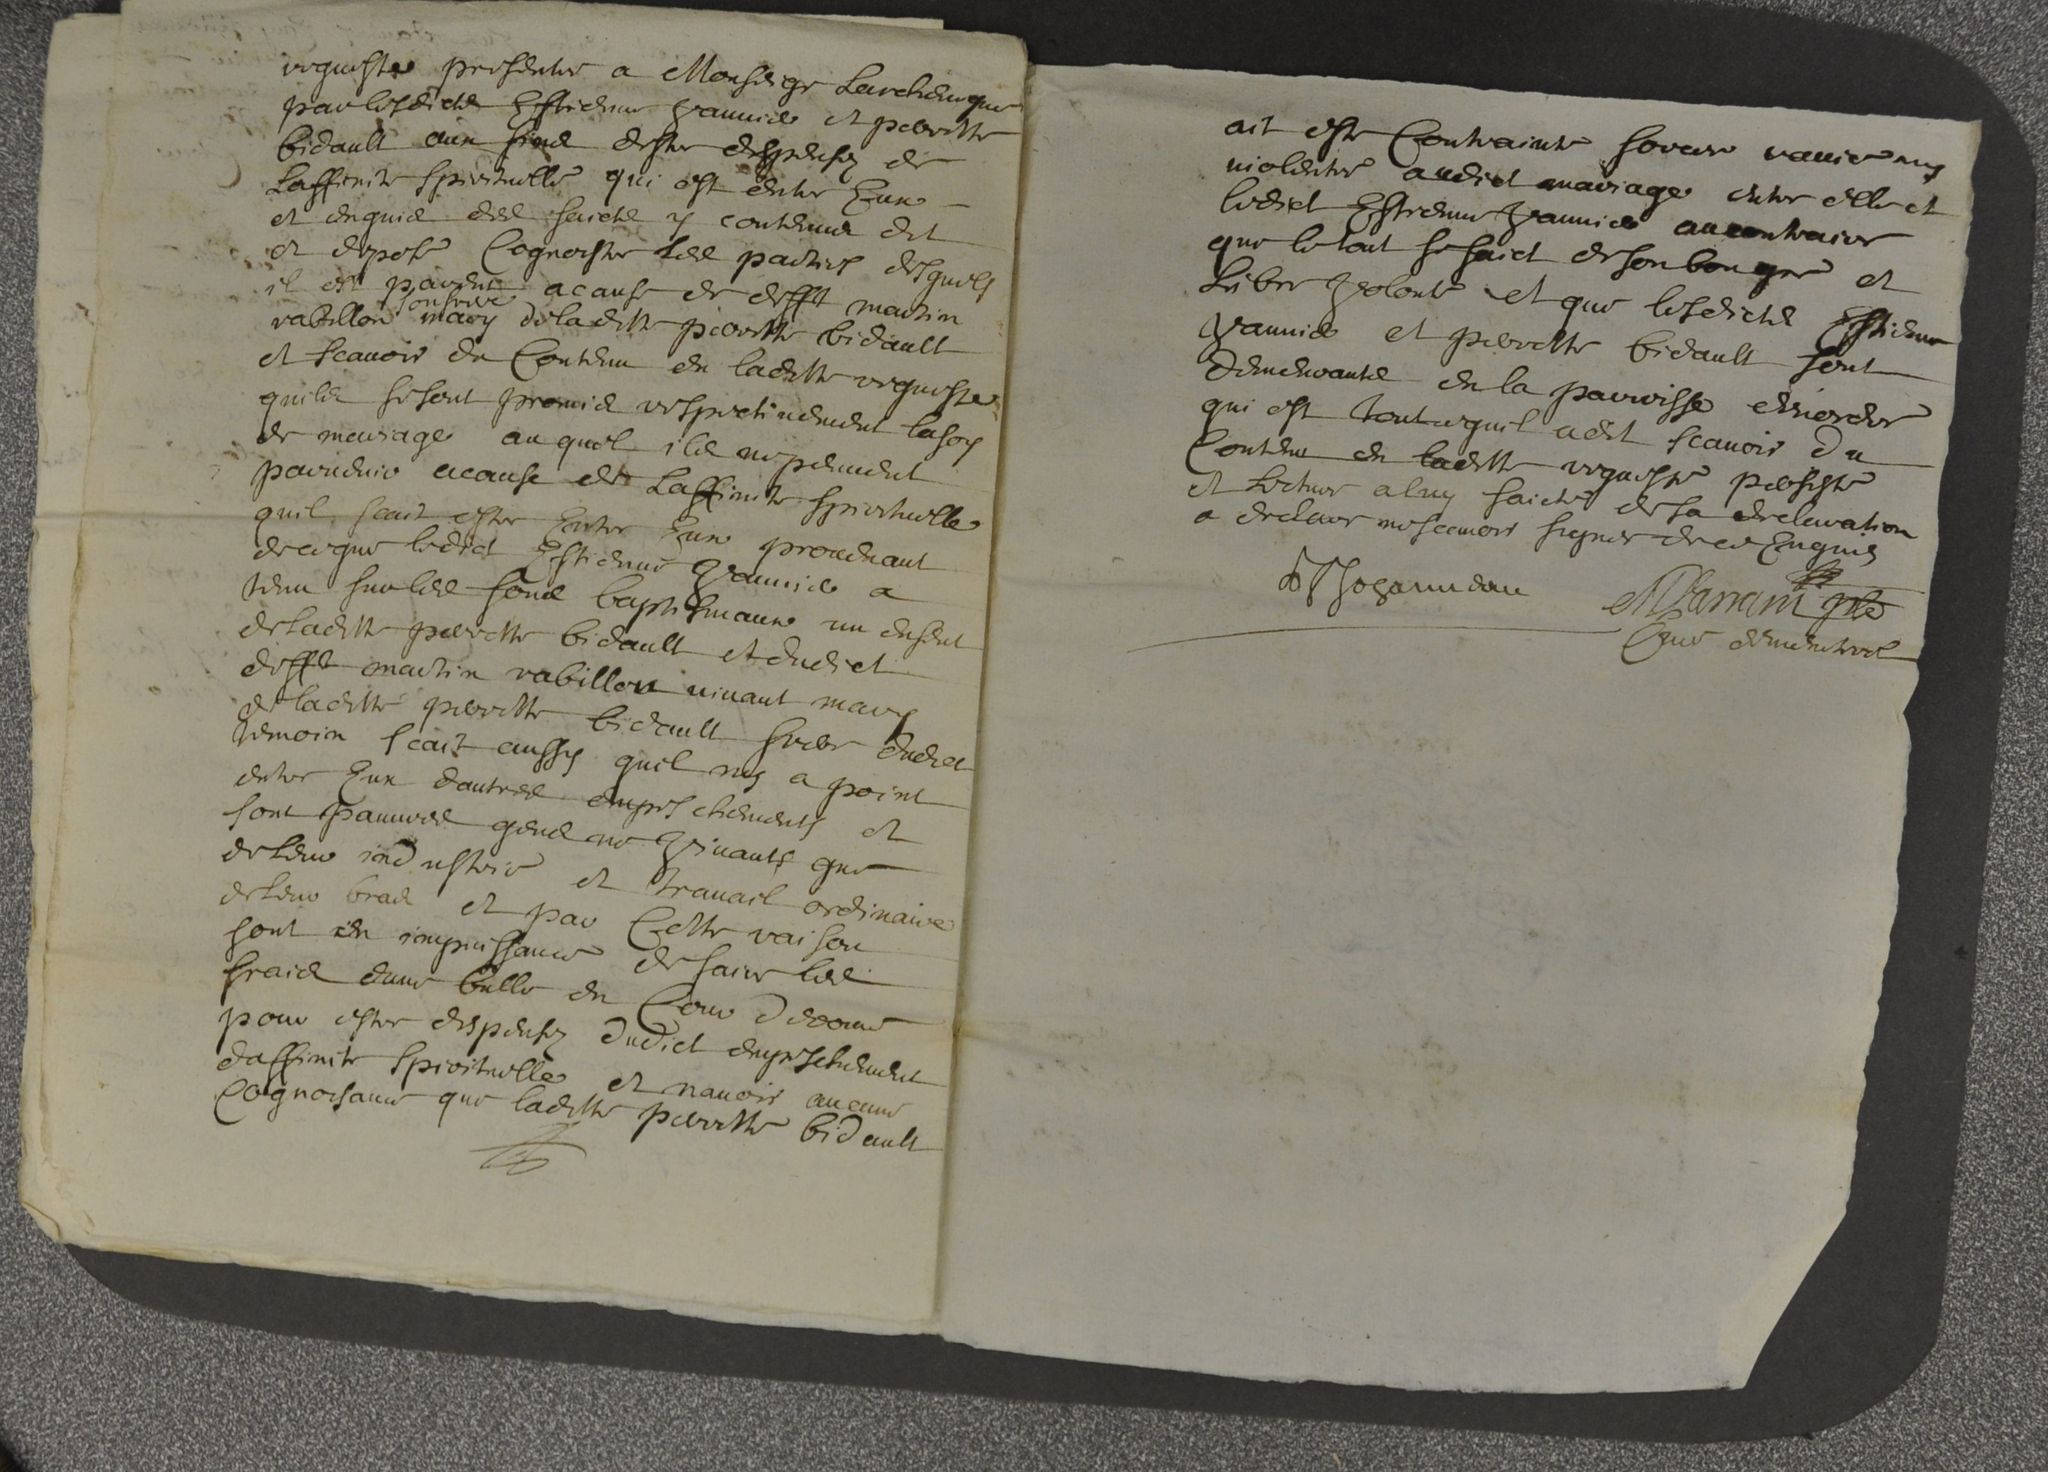 requeste presentee a Monseigr Larchevesque
par lesdicts Estienne Jannics et perrette
bidault aux fins destre dispensez de
Laffinite spirituelle qui est entre Eux
et enquis des faicts y contenus dit
et depose Cognoistre les parties desquels
il est parent a cause de defft martin
rabillon son frere mary de laditte perrette bidault
et scavoir du Contenu en laditte requeste
quils se sont promis respectivement la foy
de mariage auquel ils ne peuvent
parvenir a cause de Laffinite spirituelle
quil scait estre Entre Eux provenant
de ce que ledict Estienne Jannics a
tenu sur les fons baptismaux un enfent
de laditte perrette bidault et dudict
defft martin rabillon vivant mary
de laditte perrette bidault frere dudict
temoin scait aussy quil ny a point
entre Eux dautres empeschements et
sont pauvres gens ne vivants que
de leur industrie et travail ordinaire
de leur bras et par Cette raison
sont en impuissance de faire les
frais dune bulle en Cour de rome
pour estre dispensez dudict empeschement
daffinite spirituelle et navoir aucune
Cognoissance que laditte perrette bidault
ait este Contrainte forcee ravie ny
violentee audict mariage entre elle et
ledict Estienne Jannics au contraire
que le tout se faict de son bon gre et
Libre volonte et que lesdicts Estienne
Jannics et perrette bidault sont
demeurants en la parroisse
qui est tout ce quil a dit scavoir du
Contenu en laditte requeste persiste
et lecture a luy faicte de sa declaration
a declare ne scavoir signer de ce Enquis